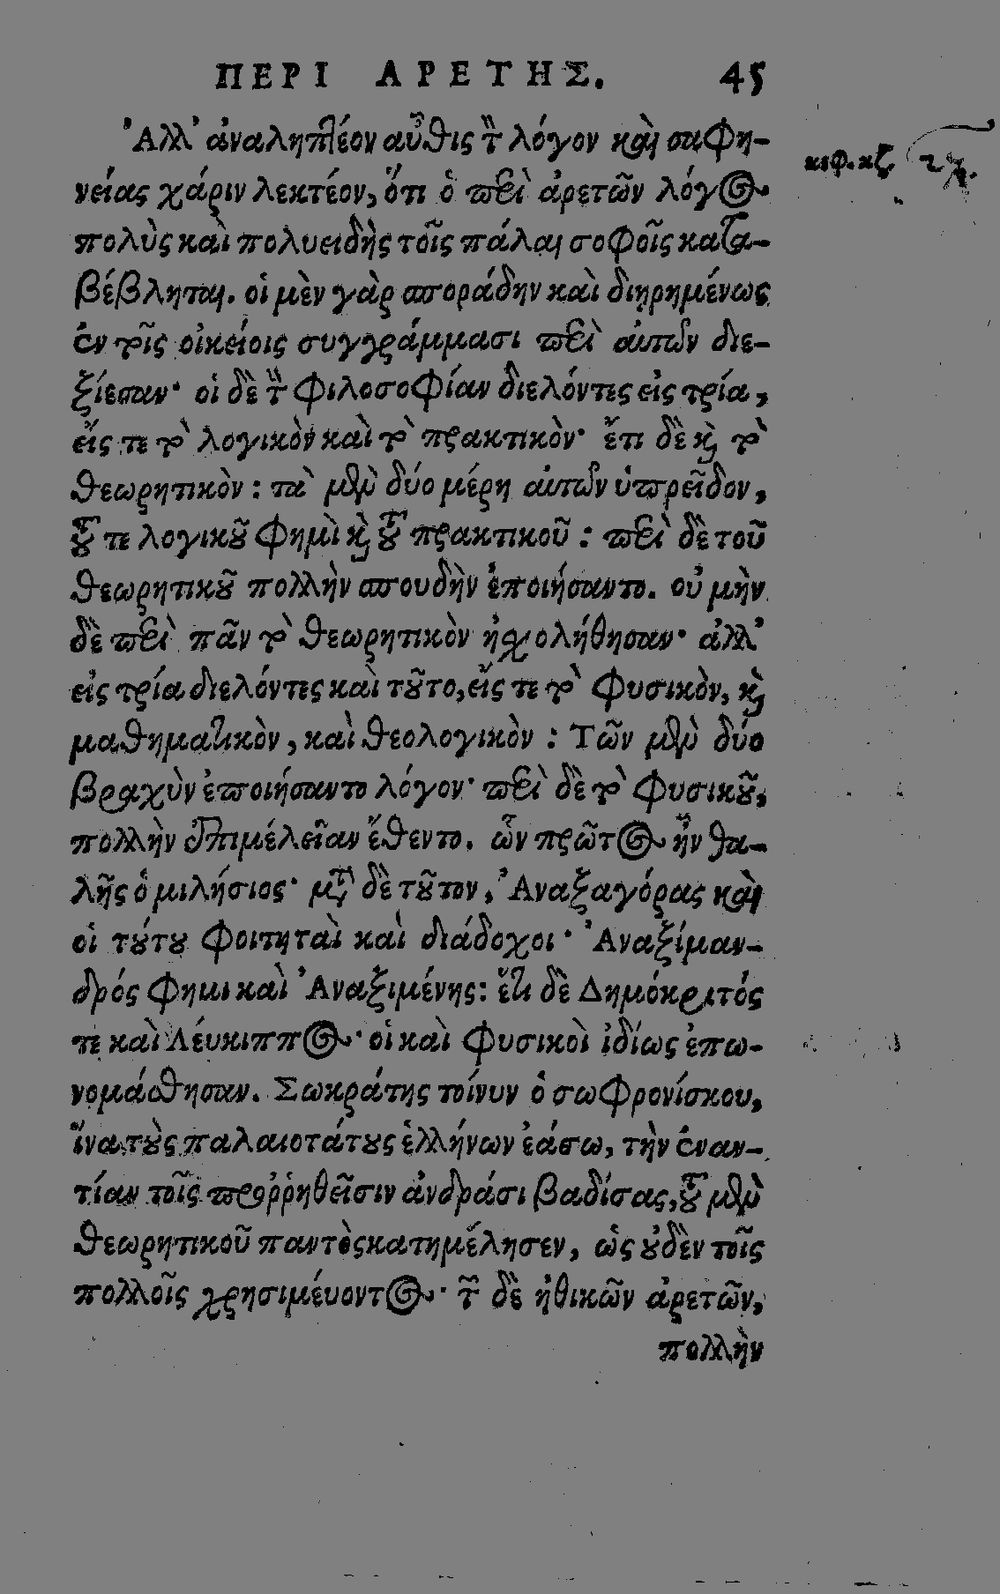 ΠΕΡΙ ΑΡΕΤΗΣ. 45
Ἀλλ' ἀναληπτέον αὖθις τὸν λόγον καὶ σαφη-
κεφ. κζ.
νείας χάριν λεκτέον, ὅτι ὁ περὶ ἀρετῶν λόγος
πολὺς καὶ πολυειδὴς τοῖς πάλαι σοφοῖς κατα-
βέβληται. οἱ μὲν γὰρ σποράδην καὶ διῃρημένως
ἐν τοῖς οἰκείοις συγγράμμασι περὶ αὐτῶν διε-
ξίεσαν· οἱ δὲ τὴν φιλοσοφίαν διελόντες εἰς τρία,
εἴς τε τὸ λογικὸν καὶ τὸ πρακτικὸν· ἔτι δὲ καὶ τὸ
θεωρητικὸν: τὰ μὲν δύο μέρη αὐτῶν ὑπερεῖδον,
τοῦ τε λογικοῦ φημὶ καὶ τοῦ πρακτικοῦ: περὶ δὲ τοῦ
θεωρητικοῦ πολλὴν σπουδὴν ἐποιήσαντο. οὐ μὴν
δὲ περὶ πᾶν τὸ θεωρητικὸν ἠσχολήθησαν· ἀλλ'
εἰς τρία διελόντες καὶ τοῦτο, εἴς τε τὸ φυσικὸν, καὶ
μαθηματικὸν, καὶ θεολογικὸν: Τῶν μὲν δύο
βραχὺν ἐποιήσαντο λόγον· περὶ δὲ τὸ φυσικοῦ,
πολλὴν ἐπιμέλειαν ἔθεντο. ὧν πρῶτος ἦν θα-
λῆς ὁ μιλήσιος· μετὰ δὲ τοῦτον, Ἀναξαγόρας καὶ
οἱ τούτου φοιτηταὶ καὶ διάδοχοι· Ἀναξίμαν-
δρός φημι καὶ Ἀναξιμένης: ἔτι δὲ Δημόκριτός
τε καὶ Λεύκιππος· οἱ καὶ φυσικοὶ ἰδίως ἐπω-
νομάσθησαν. Σωκράτης τοίνυν ὁ σωφρονίσκου,
ἵνα τοὺς παλαιοτάτους ἑλλήνων ἐάσω, τὴν ἐναν-
τίαν τοῖς προῤῥηθεῖσιν ἀνδράσι βαδίσας, τοῦ μὲν
θεωρητικοῦ παντὸς κατημέλησεν, ὡς οὐδὲν τοῖς
πολλοῖς χρησιμέυοντος· τῶν δὲ ἠθικῶν ἀρετῶν,
πολλὴν